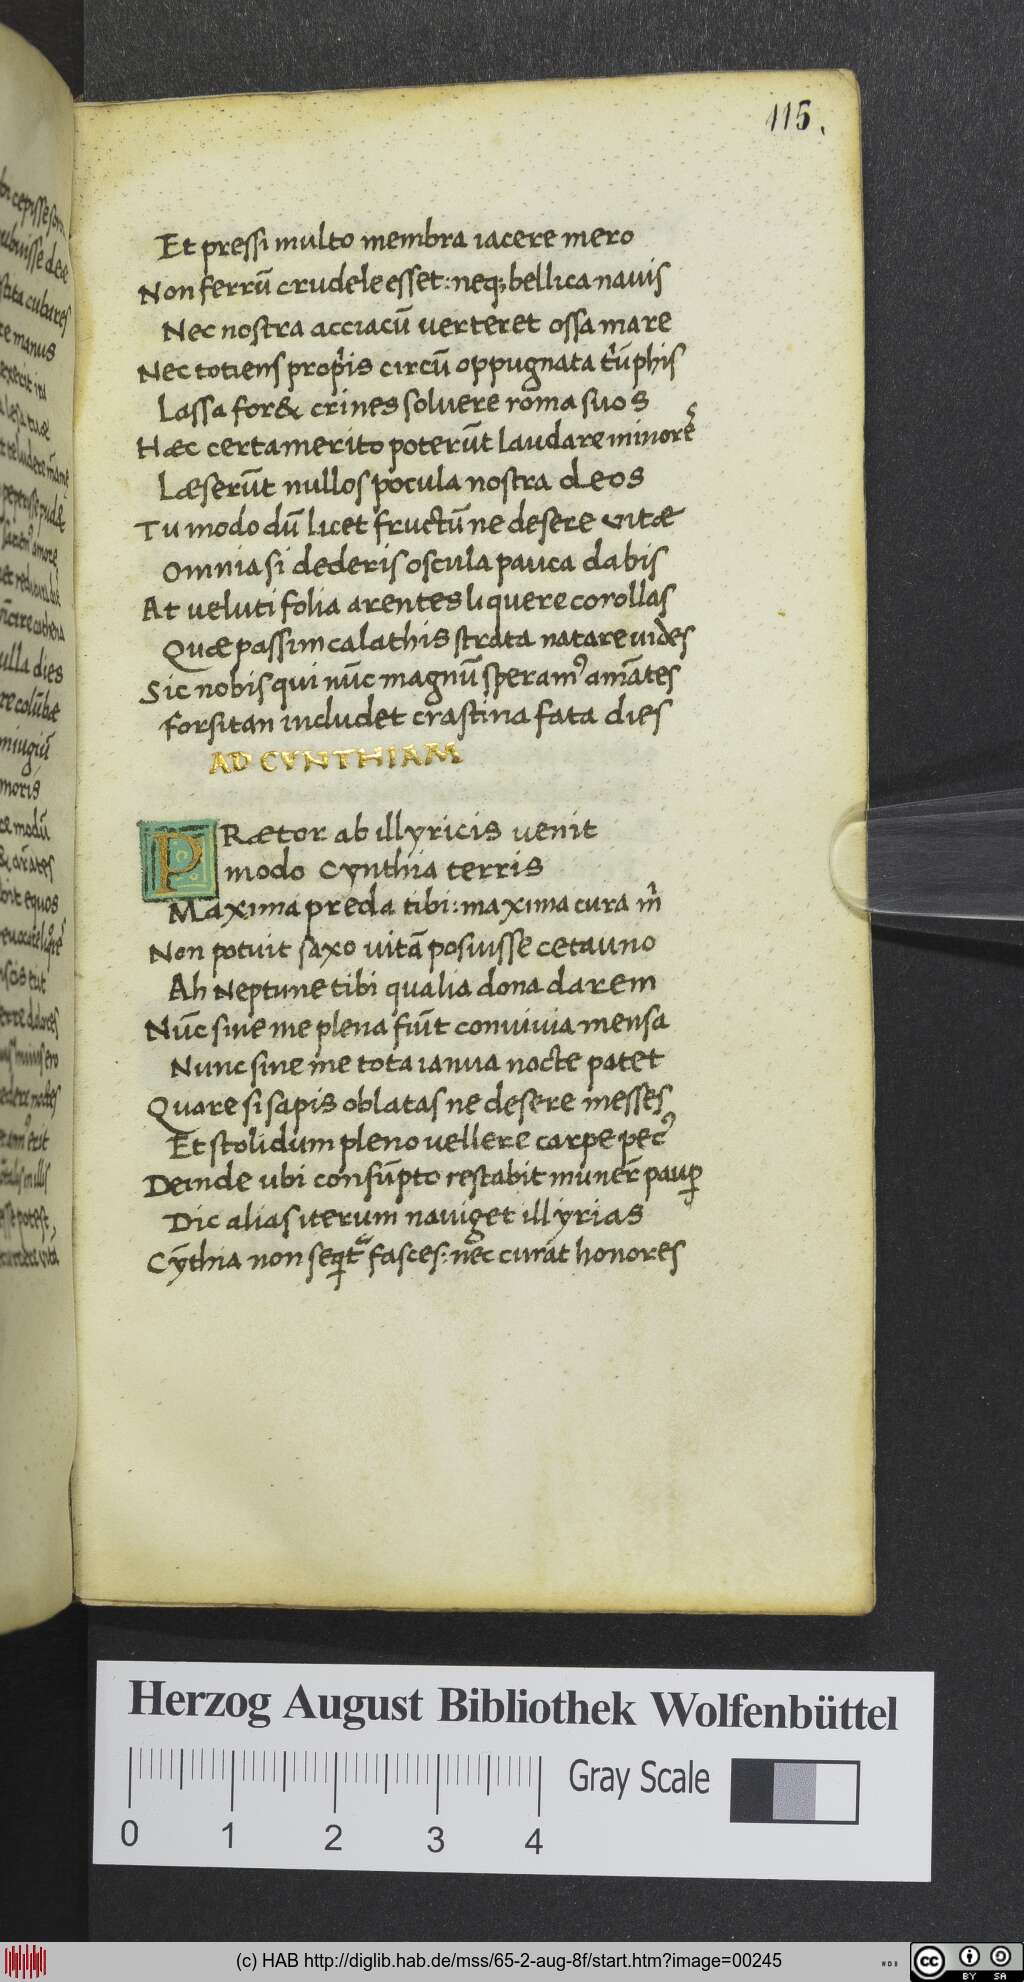 115.
Et pressi multo membra iacere mero
Non ferrū crudele esset: neq; bellica nauis
Nec nostra acciacū verteret ossa mare
Nec totiens propͥis circū oppugnata tͥūphis
Lassa for& crines soluere roma suos
Hæc certa merito poterūt laudare minorēs
Læserūt nullos pocula nostra deos
Tu modo dū licet fructū ne desere vitæ
Omnia si dederis oscula pauca dabis
At veluti folia arentes liquere corollas
Quæ passim calathis strata natare uides
Sic nobis qui nūc magnū speramꝰ amātes
forsitan includet crastina fata dies
AD CYNTHIAM
PRætor ab illyricis venit
modo Cynthia terris
Maxima preda tibi: maxima cura mͥ
Non potuit saxo uitā posuisse cetauno
Ah Neptune tibi qualia dona darem
Nūc sine me plena fiūt conuiuia mensa
Nunc sine me tota ianua nocte patet
Quare si sapis oblatas ne desere messes
Et stolidum pleno vellere carpe pecꝰ
Deinde ubi consūpto restabit munerē paup
Dic alias iterum nauiget illyrias
Cȳthia non seqͥt fasces: nec curat honores
Herzog August Bibliothek Wolfenbüttel
0 1 2 3 4
Gray Scale
(c) HAB http://diglib.hab.de/mss/65-2-aug-8f/start.htm?image=00245
HAB
cc BY SA